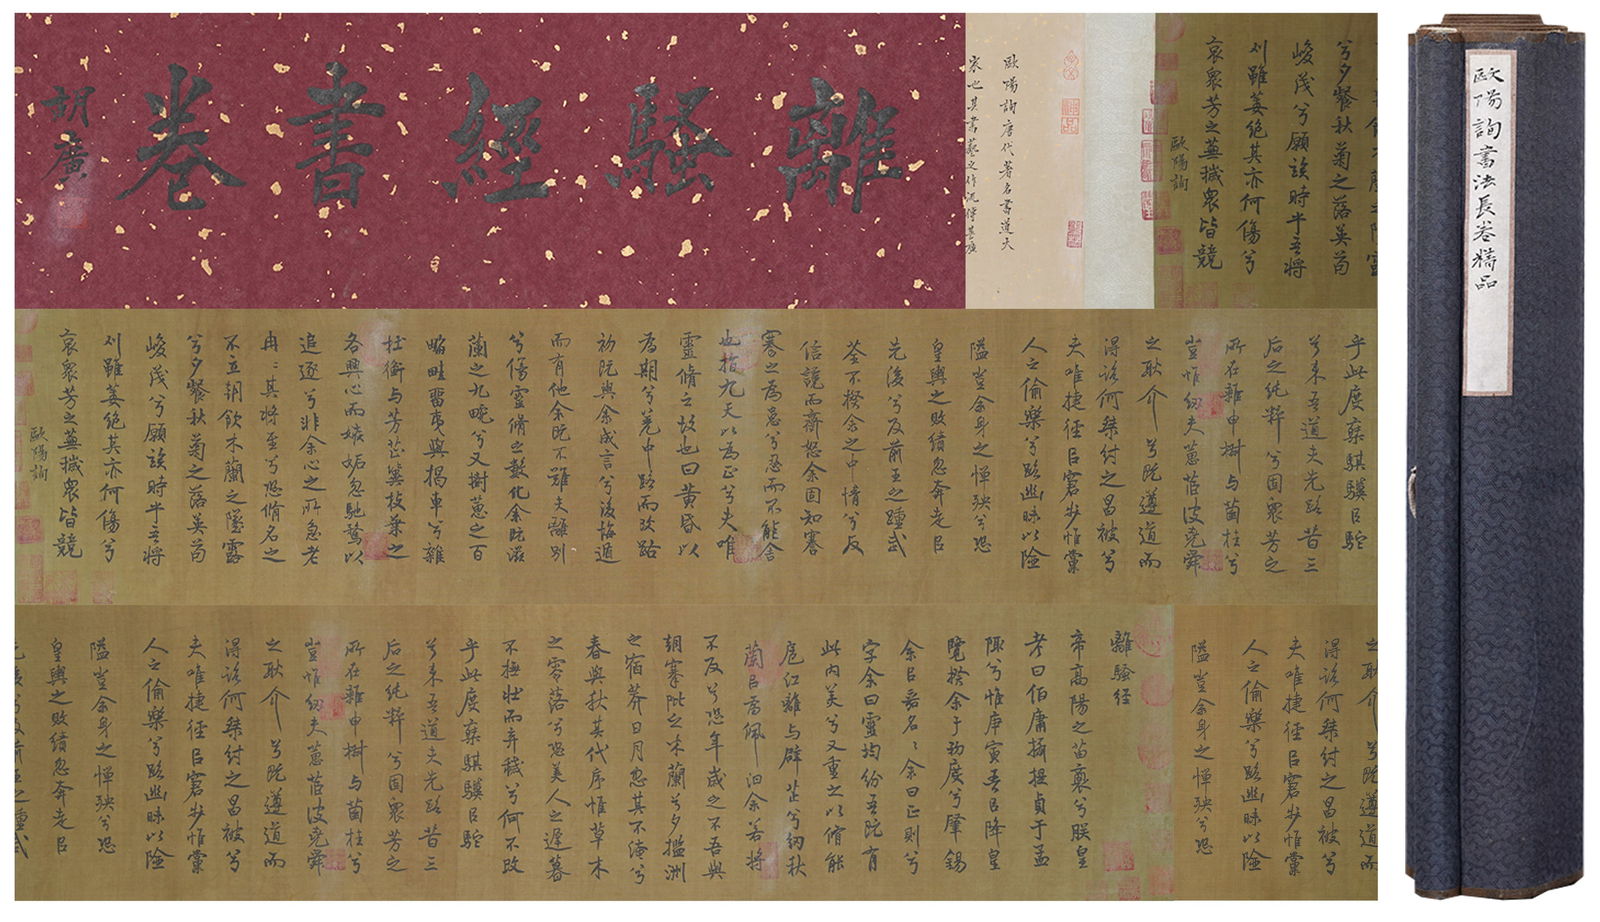 歐陽詢書法長卷精品
兮夕餐秋菊之落英苟
峻茂兮願竢時乎吾將
刈雖萎絕其亦何傷兮
哀衆芳之蕪穢衆皆競
歐陽詢
歐陽詢唐代著名書道大
家也其書藝之作汎傳甚廣
離騷經書卷
胡廣
乎此度乘騏驥㠯駝
兮来吾道夫先路昔三
后之純粹兮固衆芳之
所在雜申樹与菌桂兮
豈惟紉夫蕙茝彼堯舜
之耿介兮既遵道而
得路何桀紂之昌被兮
夫唯捷徑㠯窘步惟黨
人之偷樂兮路幽昧以險
隘豈余身之憚殃兮恐
皇輿之敗績忽奔走㠯
先後兮及前王之踵武
荃不揆余之中情兮反
信讒而齌怒余固知謇
謇之為患兮忍而不能舍
也指九天以為正兮夫唯
靈脩之故也曰黄昏以
為期兮羌中路而改路
初既與余成言兮後悔遁
而有他余既不難夫離別
兮傷靈脩之數化余既滋
蘭之九畹兮又樹蕙之百
畝畦留夷與揭車兮雜
杜衡与芳芷冀枝葉之
各興心而嫉妬忽馳騖以
追逐兮非余心之所急老
冉冉其將至兮恐脩名之
不立朝飲木蘭之墜露
兮夕餐秋菊之落英苟
峻茂兮願竢時乎吾將
刈雖萎絕其亦何傷兮
哀衆芳之蕪穢衆皆競
歐陽詢
之耿介兮既遵道而
得路何桀紂之昌被兮
夫唯捷徑㠯窘步惟黨
人之偷樂兮路幽昧以險
隘豈余身之憚殃兮恐
離騷経
帝高陽之苗裔兮朕皇
考曰伯庸攝提貞于孟
陬兮惟庚寅吾㠯降皇
覽揆余于初度兮肇錫
余㠯嘉名々余曰正則兮
字余曰靈均紛吾既有
此内美兮又重之以脩能
扈江離与辟芷兮紉秋
蘭㠯為佩汩余若將
不及兮恐年歲之不吾與
朝搴阰之木蘭兮夕攬洲
之宿莽日月忽其不淹兮
春與秋其代序惟草木
之零落兮恐美人之遲暮
不撫壯而弃穢兮何不改
乎此度乘騏驥㠯駝
兮来吾道夫先路昔三
后之純粹兮固衆芳之
所在雜申樹与菌桂兮
豈惟紉夫蕙茝彼堯舜
之耿介兮既遵道而
得路何桀紂之昌被兮
夫唯捷徑㠯窘步惟黨
人之偷樂兮路幽昧以險
隘豈余身之憚殃兮恐
皇輿之敗績忽奔走㠯